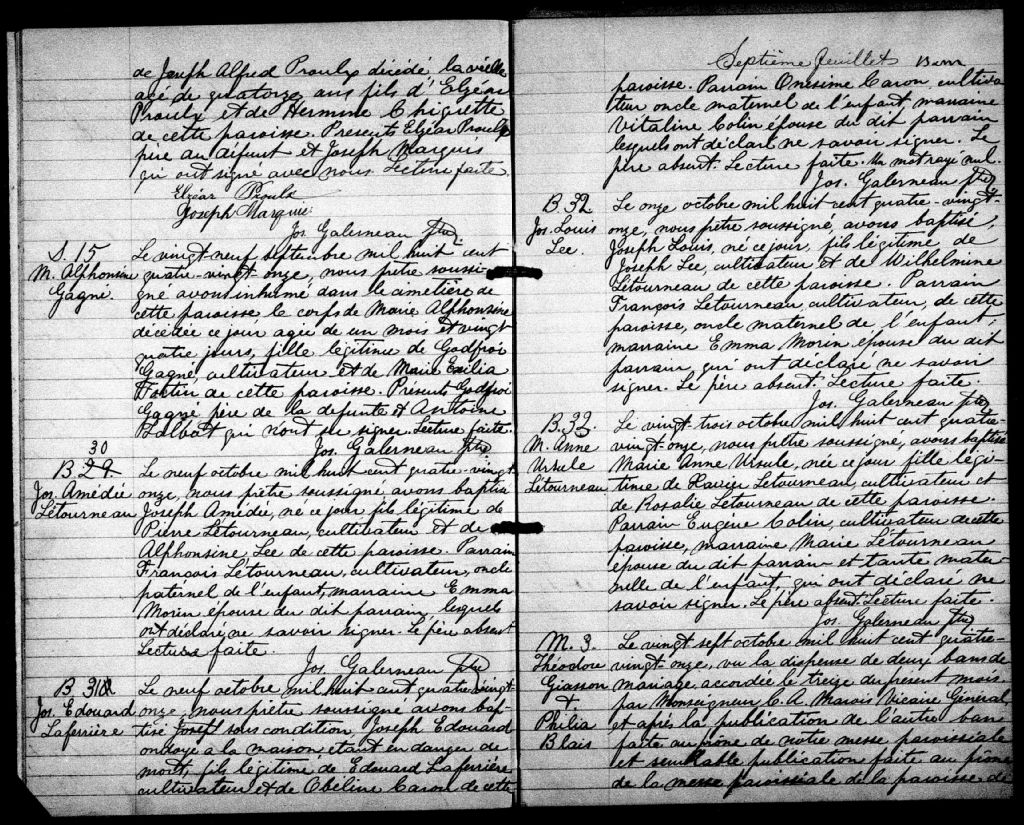 de Joseph Alfred Proulx décédé la vieille
agé de quatorze ans fils d'Elzéar
Proulx et de Hermine Chiquette
de cette paroisse. Présents Elzéar Proulx
père du défunt et Joseph Marquis
qui ont signé avec nous. Lecture faite.
Elzéar Proulx
Joseph Marquis
Jos. Galerneau Ptre
S. 15
M. Alphonsine
Gagné.
Le vingt-neuf septembre mil huit cent
quatre-vingt-onze, nous prêtre soussi-
gné avons inhumé dans le cimetière de
cette paroisse le corps de Marie Alphonsine
décédée ce jour agée de un mois et vingt
quatre jours, fille légitime de Godfroi
Gagné, cultivateur et de Marie Exilia
Fortin de cette paroisse. Présents Godfroi
Gagné père de la défunte et Antoine
Talbot qui n'ont su signer. Lecture faite.
Jos. Galerneau Ptre
30
B 29
Jos. Amédée
Létourneau
Le neuf octobre mil huit cent quatre-vingt
onze, nous prêtre soussigné avons baptisé
Joseph Amédée, né ce jour, fils légitime de
Pierre Létourneau, cultivateur et de
Alphonsine Lee de cette paroisse. Parrain
François Létourneau, cultivateur, oncle
paternel de l'enfant, marraine Emma
Morin épouse du dit parrain, lesquels
ont déclaré ne savoir signer. Le père absent
Lecture faite.
Jos. Galerneau Ptre
B 31
Jos. Edouard
Laferrière
Le neuf octobre mil huit cent quatre vingt-
onze, nous prêtre soussigné avons bap-
tisé Josef sous condition, Joseph Edouard
ondoyé a la maison étant en danger de
mort, fils légitime de Edouard Laferrière
cultivateur et de Obéline Caron de cette
Septième feuillet
paroisse. Parrain Onésime Caron, cultiva-
teur oncle maternel de l'enfant, marraine
Vitaline Colin épouse du dit parrain
lesquels ont déclaré ne savoir signer. Le
père absent. Lecture faite. Un mot rayé nul.
Jos. Galerneau Ptre
B. 32
Jos. Louis
Lee.
Le onze octobre mil huit cent quatre-vingt-
onze, nous prêtre soussigné, avons baptisé,
Joseph Louis, né ce jour, fils légitime de
Joseph Lee, cultivateur et de Wilhelmine
Létourneau de cette paroisse. Parrain
François Létourneau, cultivateur, de cette
paroisse, oncle maternel de l'enfant;
marraine Emma Morin épouse du dit
parrain qui ont déclaré ne savoir
signer. Le père absent. Lecture faite.
Jos. Galerneau Ptre
B. 33.
M. Anne
Ursule
Létourneau
Le vingt-trois octobre mil huit cent quatre-
vingt-onze, nous prêtre soussigné, avons baptisé
Marie Anne Ursule, née ce jour fille légi-
time de Xavier Létourneau, cultivateur et
de Rosalie Létourneau de cette paroisse.
Parrain Eugène Colin, cultivateur de cette
paroisse, marraine Marie Létourneau
épouse du dit parrain et tante mater-
nelle de l'enfant, qui ont déclaré ne
savoir signer. Le père absent. Lecture faite.
Jos. Galerneau Ptre
M. 3.
Théodore
Giasson
&
Philia
Blais
Le vingt sept octobre mil huit cent quatre-
vingt-onze, vu la dispense de deux bans de
mariage accordée le treize du présent mois
par Monseigneur C. A. Marois Vicaire Général
et après la publication de l'autre ban
faite au prône de notre messe paroissiale
et semblable publication faite au prône
de la messe paroissiale de la paroisse de